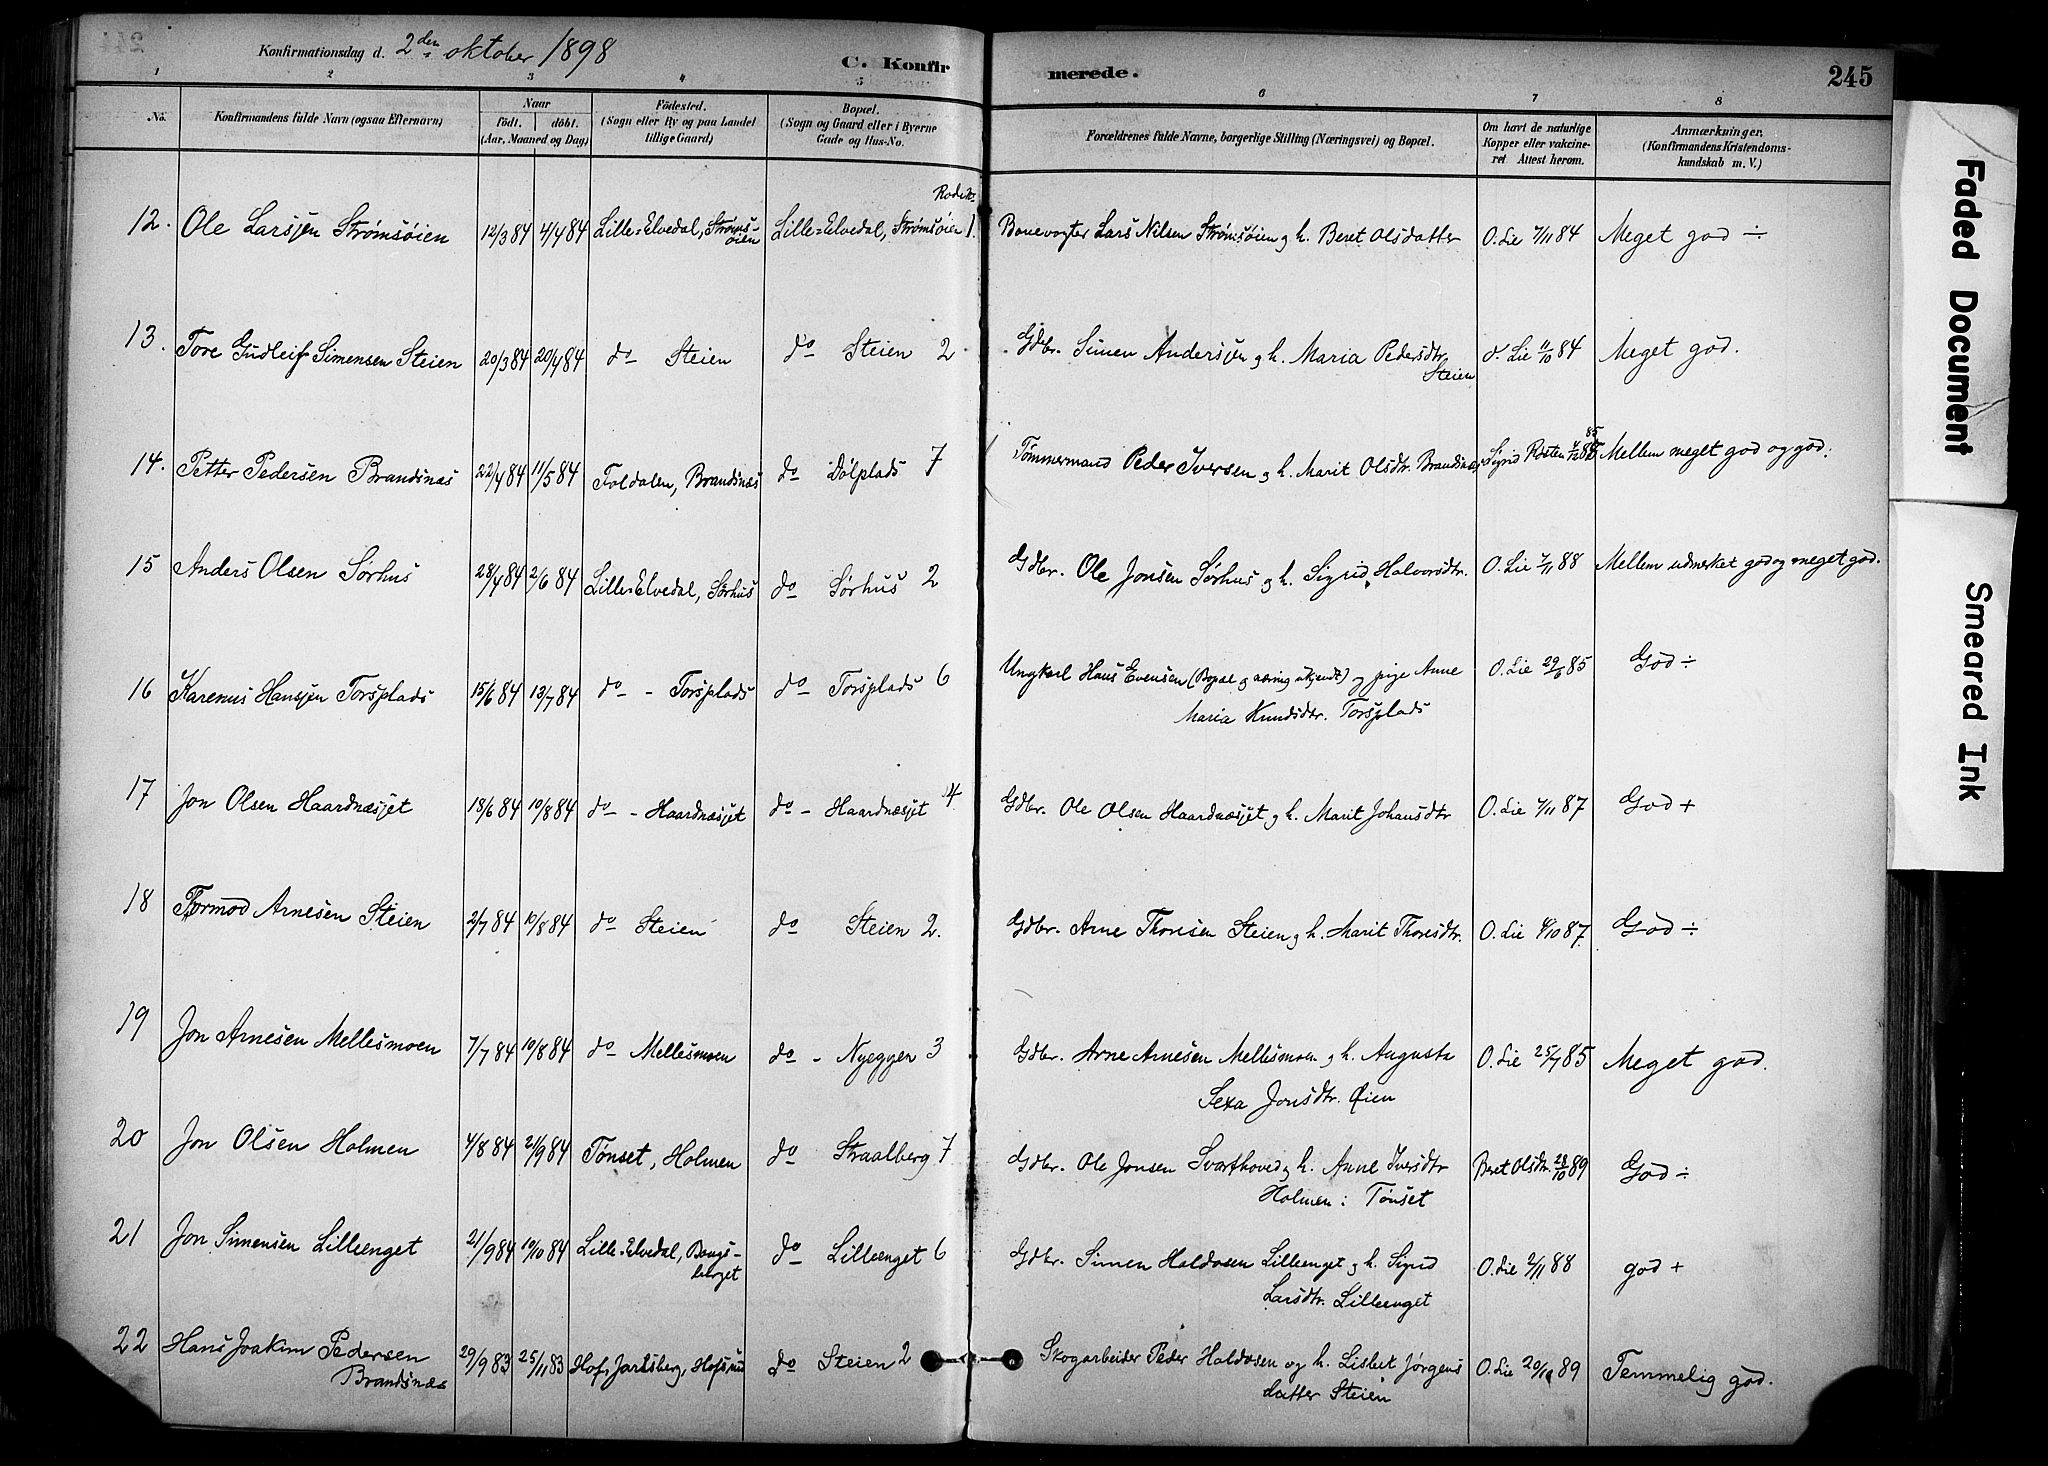 Konfirmationsdag d. 2den oktober 1898
C. Konfir merede. 245
1 2 3 4 5 6 7 8
No. Konfirmandens fulde Navn (ogsaa Efternavn) Naar födt. döbt. (Aar, Maaned og Dag) Födested. (Sogn eller By og paa Landet tillige Gaard) Bopæl. (Sogn og Gaard eller i Byerne Gade og Hus-No. Forældrenes fulde Navne, borgerlige Stilling (Næringsvei) og Bopæl. Om havt de naturlige Kopper eller vakcineret Attest herom. Anmærkninger. (Konfirmandens Kristendomskundskab m. V.)
Rode №
12. Ole Larssen Strømsøien 12/3 84 4/4 84 Lille-Elvedal, Strømsøien Lille-Elvedal, Strømsøien 1. Banevogter Lars Nilsen Strømsøien og h. Beret Olsdatter O. Lie 7/11 84 Meget god ÷
13. Tore Gudleif Simensen Steien 20/3 84 20/4 84 do Steien do Steien 2 Gdbr. Simen Anderssen og h. Maria Pedersdtr.
Steien O. Lie 11/10 84 Meget god.
14. Petter Pedersen Brandsnæs 22/4 84 11/5 84 Foldalen, Brandsnæs do Dölplads 7 Tömmermand Peder Iversen og h. Marit Olsdtr. Brandsnæs Sigrid Røsten 85 Mellem meget god og god.
15 Anders Olsen Sørhus 28/4 84 2/6 84 Lille-Elvedal, Sørhus do Sørhus 2 Gdbr. Ole Jonsen Sørhus og h. Sigrid Halvorsdtr. O. Lie 7/11 88 Mellem udmerket god og meget god.
16 Karenus Hanssen Torsplads 15/6 84 13/7 84 do - Torsplads do Torsplads 6 Ungkarl Hans Evensen (Bopæl og næring ukjendt) og pige Anne
Maria Knudsdtr. Torsplads O. Lie 29/6 85 God ÷
17 Jon Olsen Haardnæsjet 18/6 84 10/8 84 do - Haardnæsjet do - Haardnæsjet 4. Gdbr. Ole Olsen Haardnæsjet og h. Marit Johansdtr O. Lie 7/11 87 God +
18 Tormod Arnesen Steien 2/7 84 10/8 84 do Steien do Steien 2. Gdbr. Arne Thoresen Steien og h. Marit Thoresdtr. O. Lie 6/10 87. God ÷
19 Jon Arnesen Mellesmoen 7/7 84 10/8 84 do Mellesmoen do - Nyeggen 3 Gdbr. Arne Arnesen Mellesmoen og h. Augusta
Sexa Jonsdtr. Øien O. Lie 25/7 85 Meget god.
20 Jon Olsen Holmen 4/8 84 21/9 84 Tønset, Holmen do Straalberg 7 Gdbr. Ole Jonsen Svarthoved og h. Anne Iversdtr
Holmen i Tønset Beret Olsdtr. 28/10 89 God ÷
21 Jon Simensen Lilleenget 21/9 84 19/10 84 Lille-Elvedal, Baugsberget do Lilleenget 6 Gdbr. Simen Haldosen Lilleenget og h. Sigrid
Larsdtr. Lilleenget O. Lie 2/11 88 god +
22 Hans Joakim Pedersen
Brandsnæs 29/9 83 25/11 83 Hof, Jarlsberg, Hofsrud do Steien 2 Skogarbeider Peder Haldosen og h. Lisbet Jørgens
datter Steien O. Lie 20/11 89 Temmelig god.
Faded Document
Smeared Ink